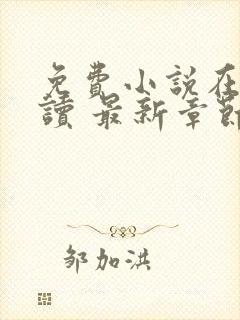 免費小說在
讀 最新章節
邹加洪